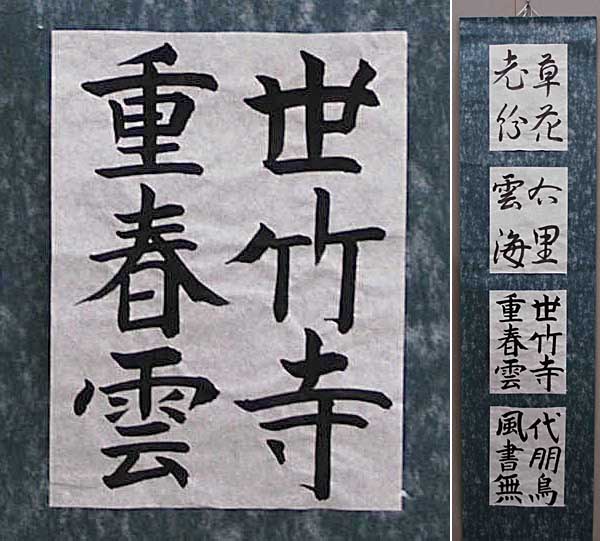 世竹寺
重春雲
草花
雲海
世竹寺
重春雲
代朋鳥
風書無